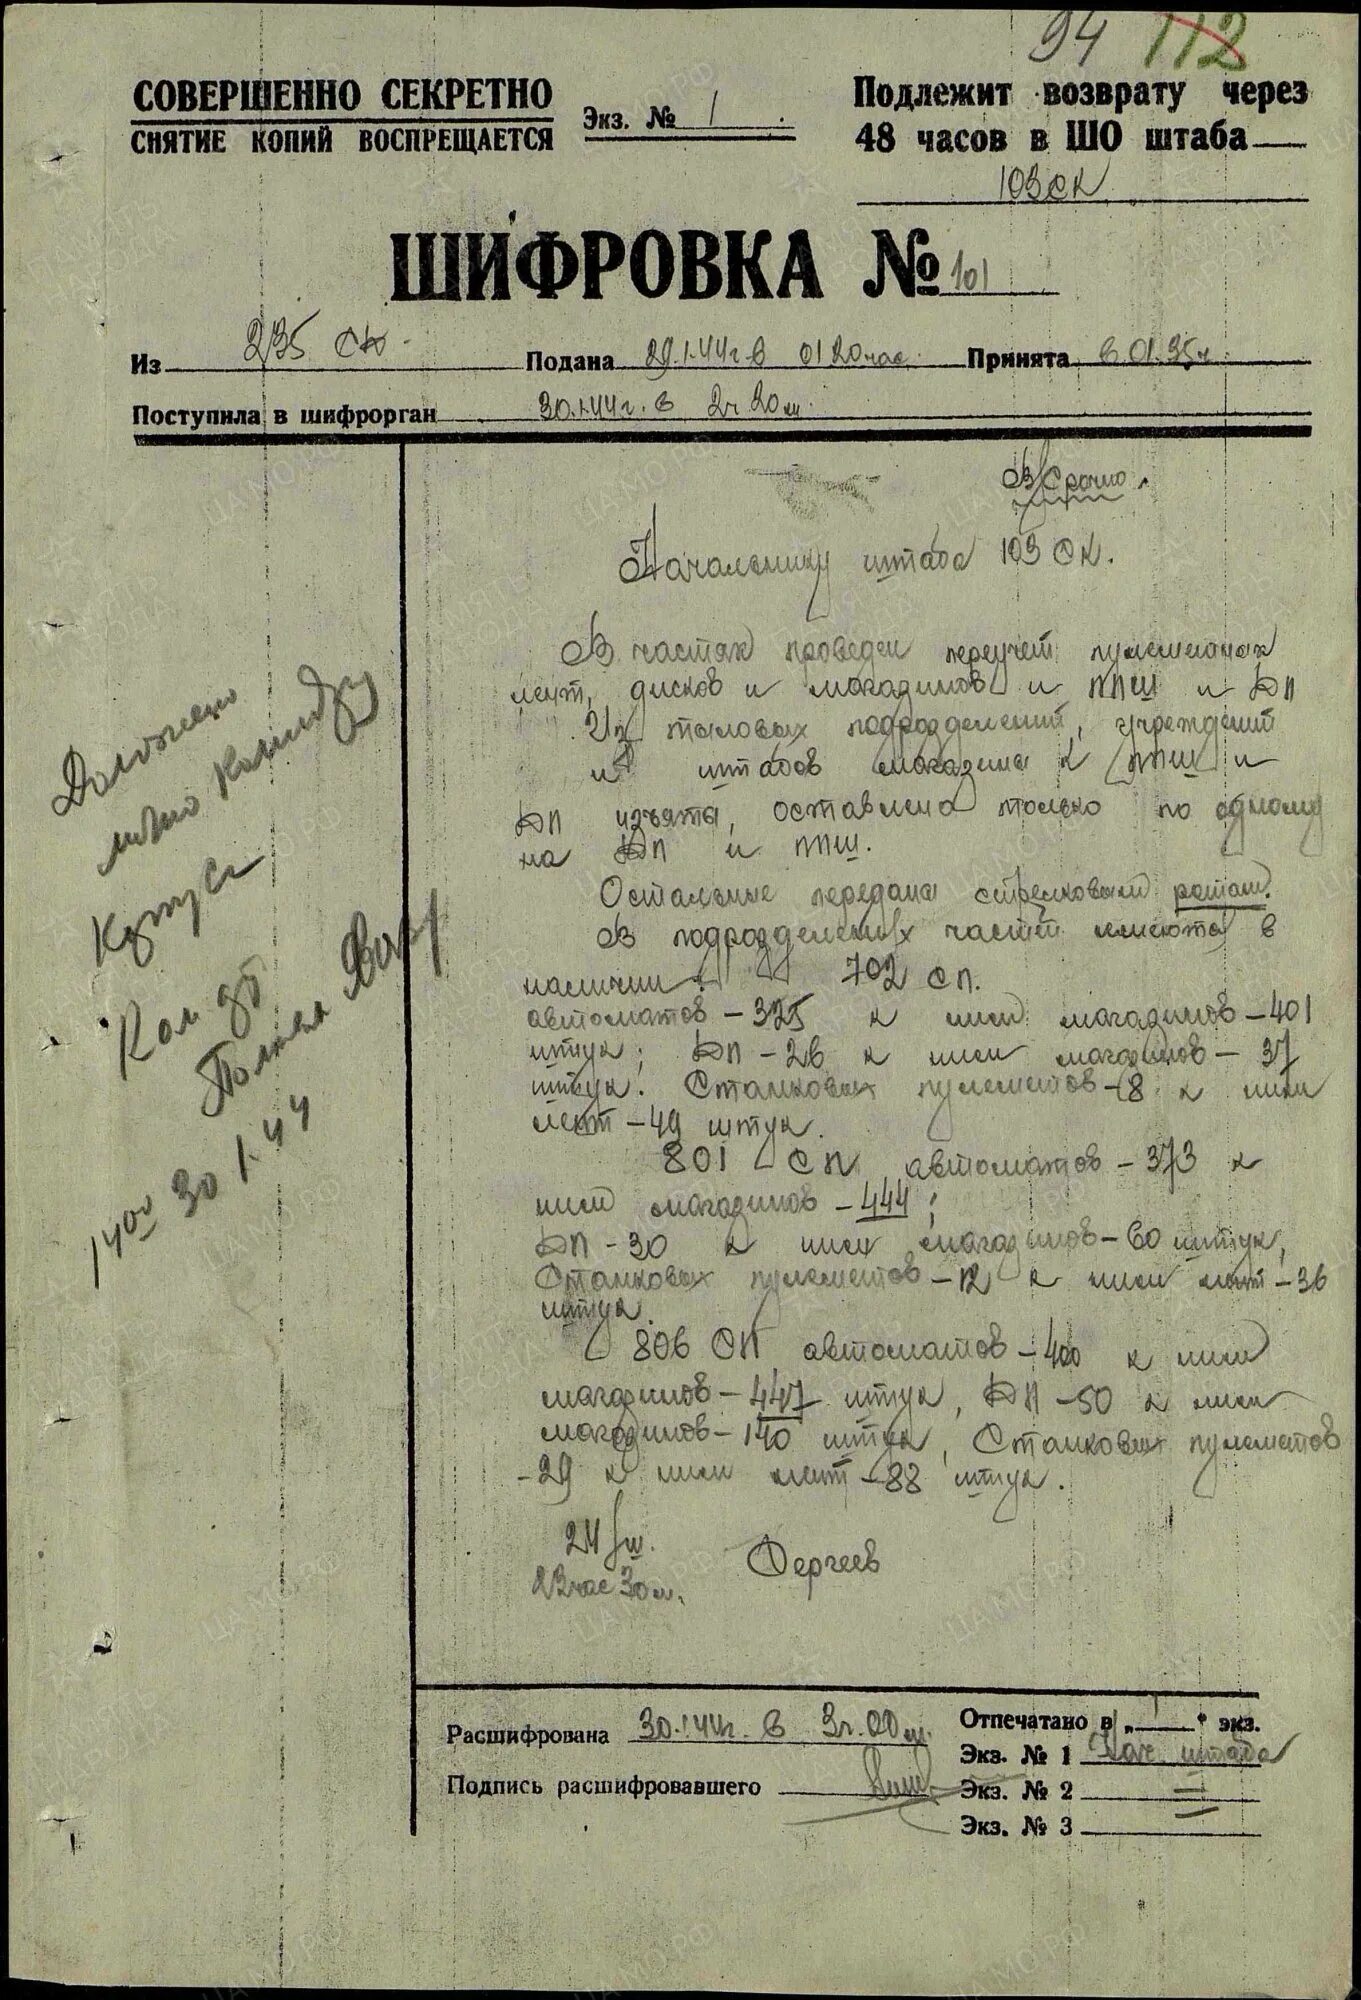 94 112
СОВЕРШЕННО СЕКРЕТНО
СНЯТИЕ КОПИЙ ВОСПРЕЩАЕТСЯ
Экз. № 1
Подлежит возврату через
48 часов в ШО штаба
103 СК
ШИФРОВКА № 101
Из 235 СД Подана 29.1.44г в 01 20 час. Принята в 01.35ч
Поступила в шифрорган 30.1.44г. в 2ч 20м.
В/Срочно.
Начальнику штаба 103 СК.
В частях проведен переучет пулеметных
лент, дисков и магазинов и ППШ и ДП
Из тыловых подразделений, учреждений
и штабов магазины к ППШ и
ДП изъяты, оставлено только по одному
на ДП и ППШ.
Остальные переданы стрелковым ротам.
В подразделениях частей имеются в
наличии: 702 СП.
автоматов – 325 к ним магазинов – 401
штук; ДП – 26 к ним магазинов – 37
штук. Станковых пулеметов – 8 к ним
лент – 49 штук.
801 СП автоматов – 373 к
ним магазинов – 444;
ДП – 30 к ним магазинов – 60 штук,
Станковых пулеметов – 12 к ним лент – 36
штук.
806 СП автоматов – 400 к ним
магазинов – 447 штук, ДП – 50 к ним
магазинов – 140 штук, Станковых пулеметов
– 29 к ним лент – 88 штук.
Сергеев
23 час 30 м.
Доложено
лично
14 00 30 1.44
Расшифрована 30.1.44г. в 3ч. 00м.
Подпись расшифровавшего
Отпечатано в „1" экз.
Экз. № 1 Нач. штаба
Экз. № 2
Экз. № 3